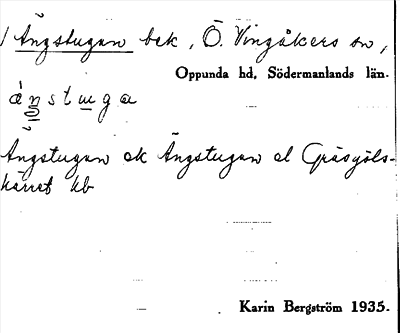 Ängstugan bek, Ö. Vingåkers sn,
Oppunda hd, Södermanlands län.
Ängstugan ek Ängstugan el Gräsgöls-
kärret kb
Karin Bergström 1935.